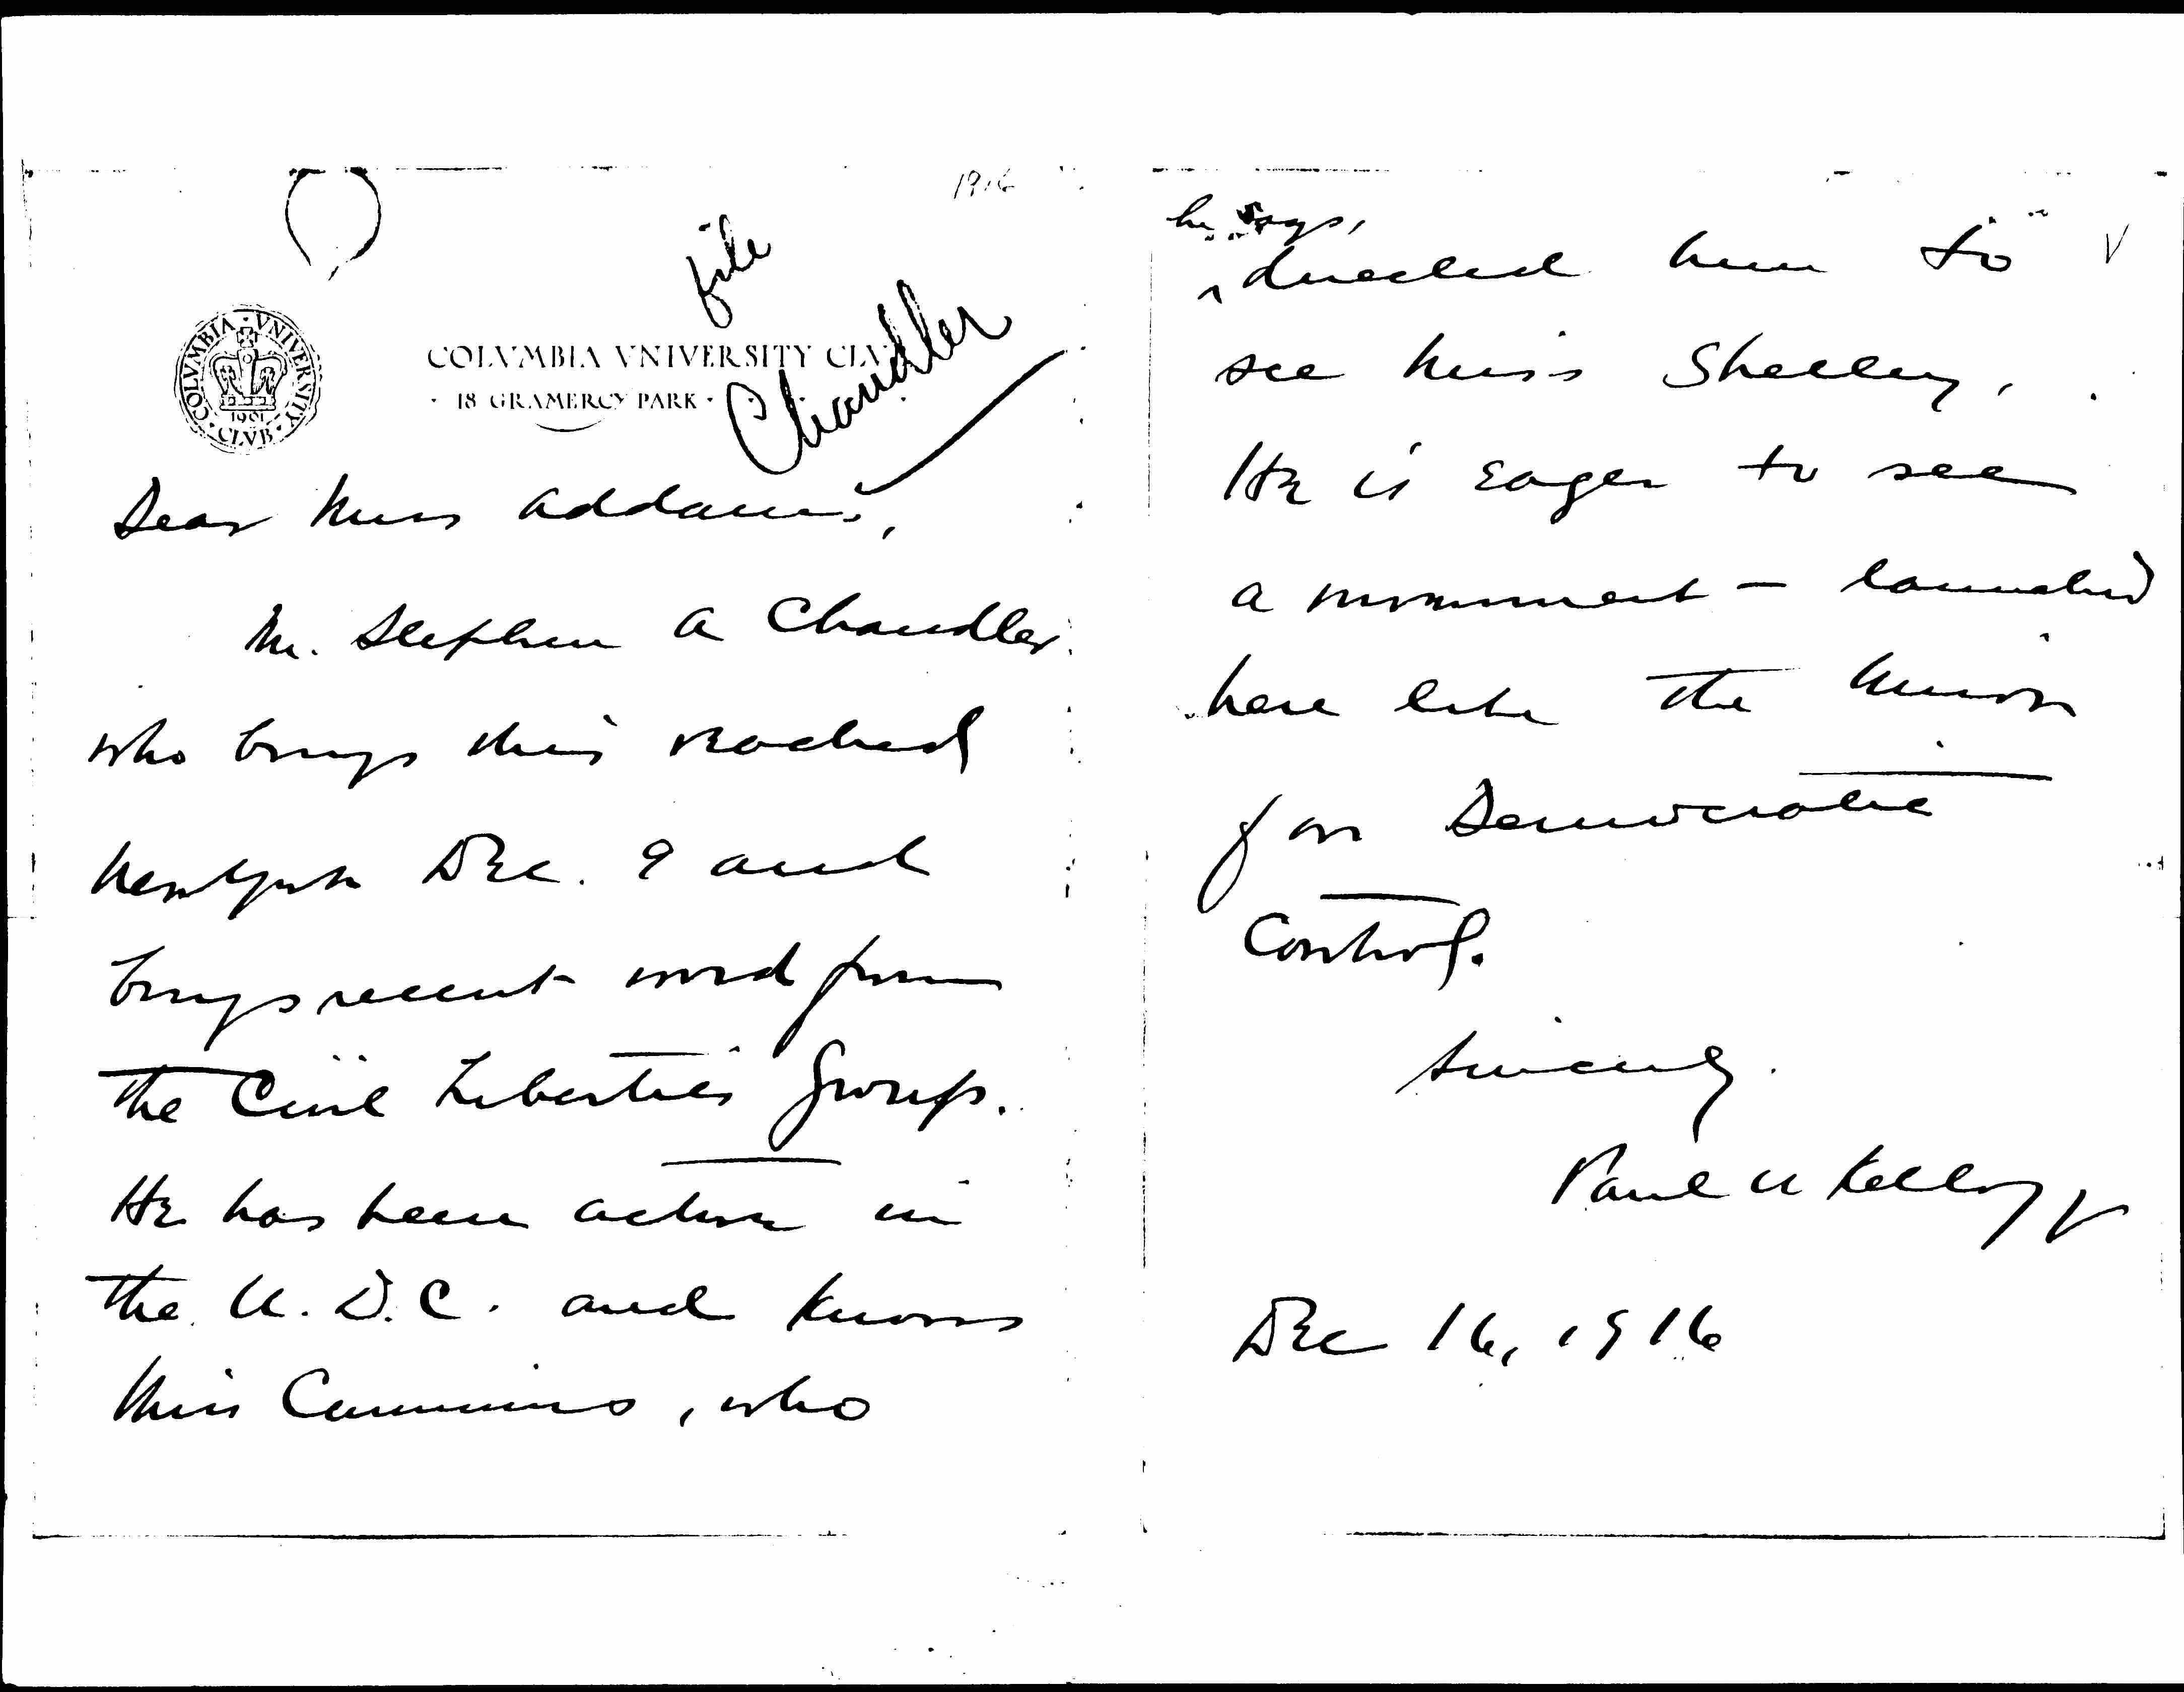 1916
file
Chandler
COLVMBIA VNIVERSITY CLVB
1901
COLVMBIA VNIVERSITY CLVB
· 18 GRAMERCY PARK ·
Dear Miss Addams,
Mr. Stephen A Chandler
who brings this reached
New York Dec. 9 and
brings recent word from
the Civil Liberties Group.
He has been active in
the U.D.C. and knows
Miss Cummins, who
he says,
directed him to
see Miss Shelley,
He is eager to see
a movement – launched
here like the Union
for Democratic
Control.
Sincerely
Paul U Kellogg
Dec 16, 1916